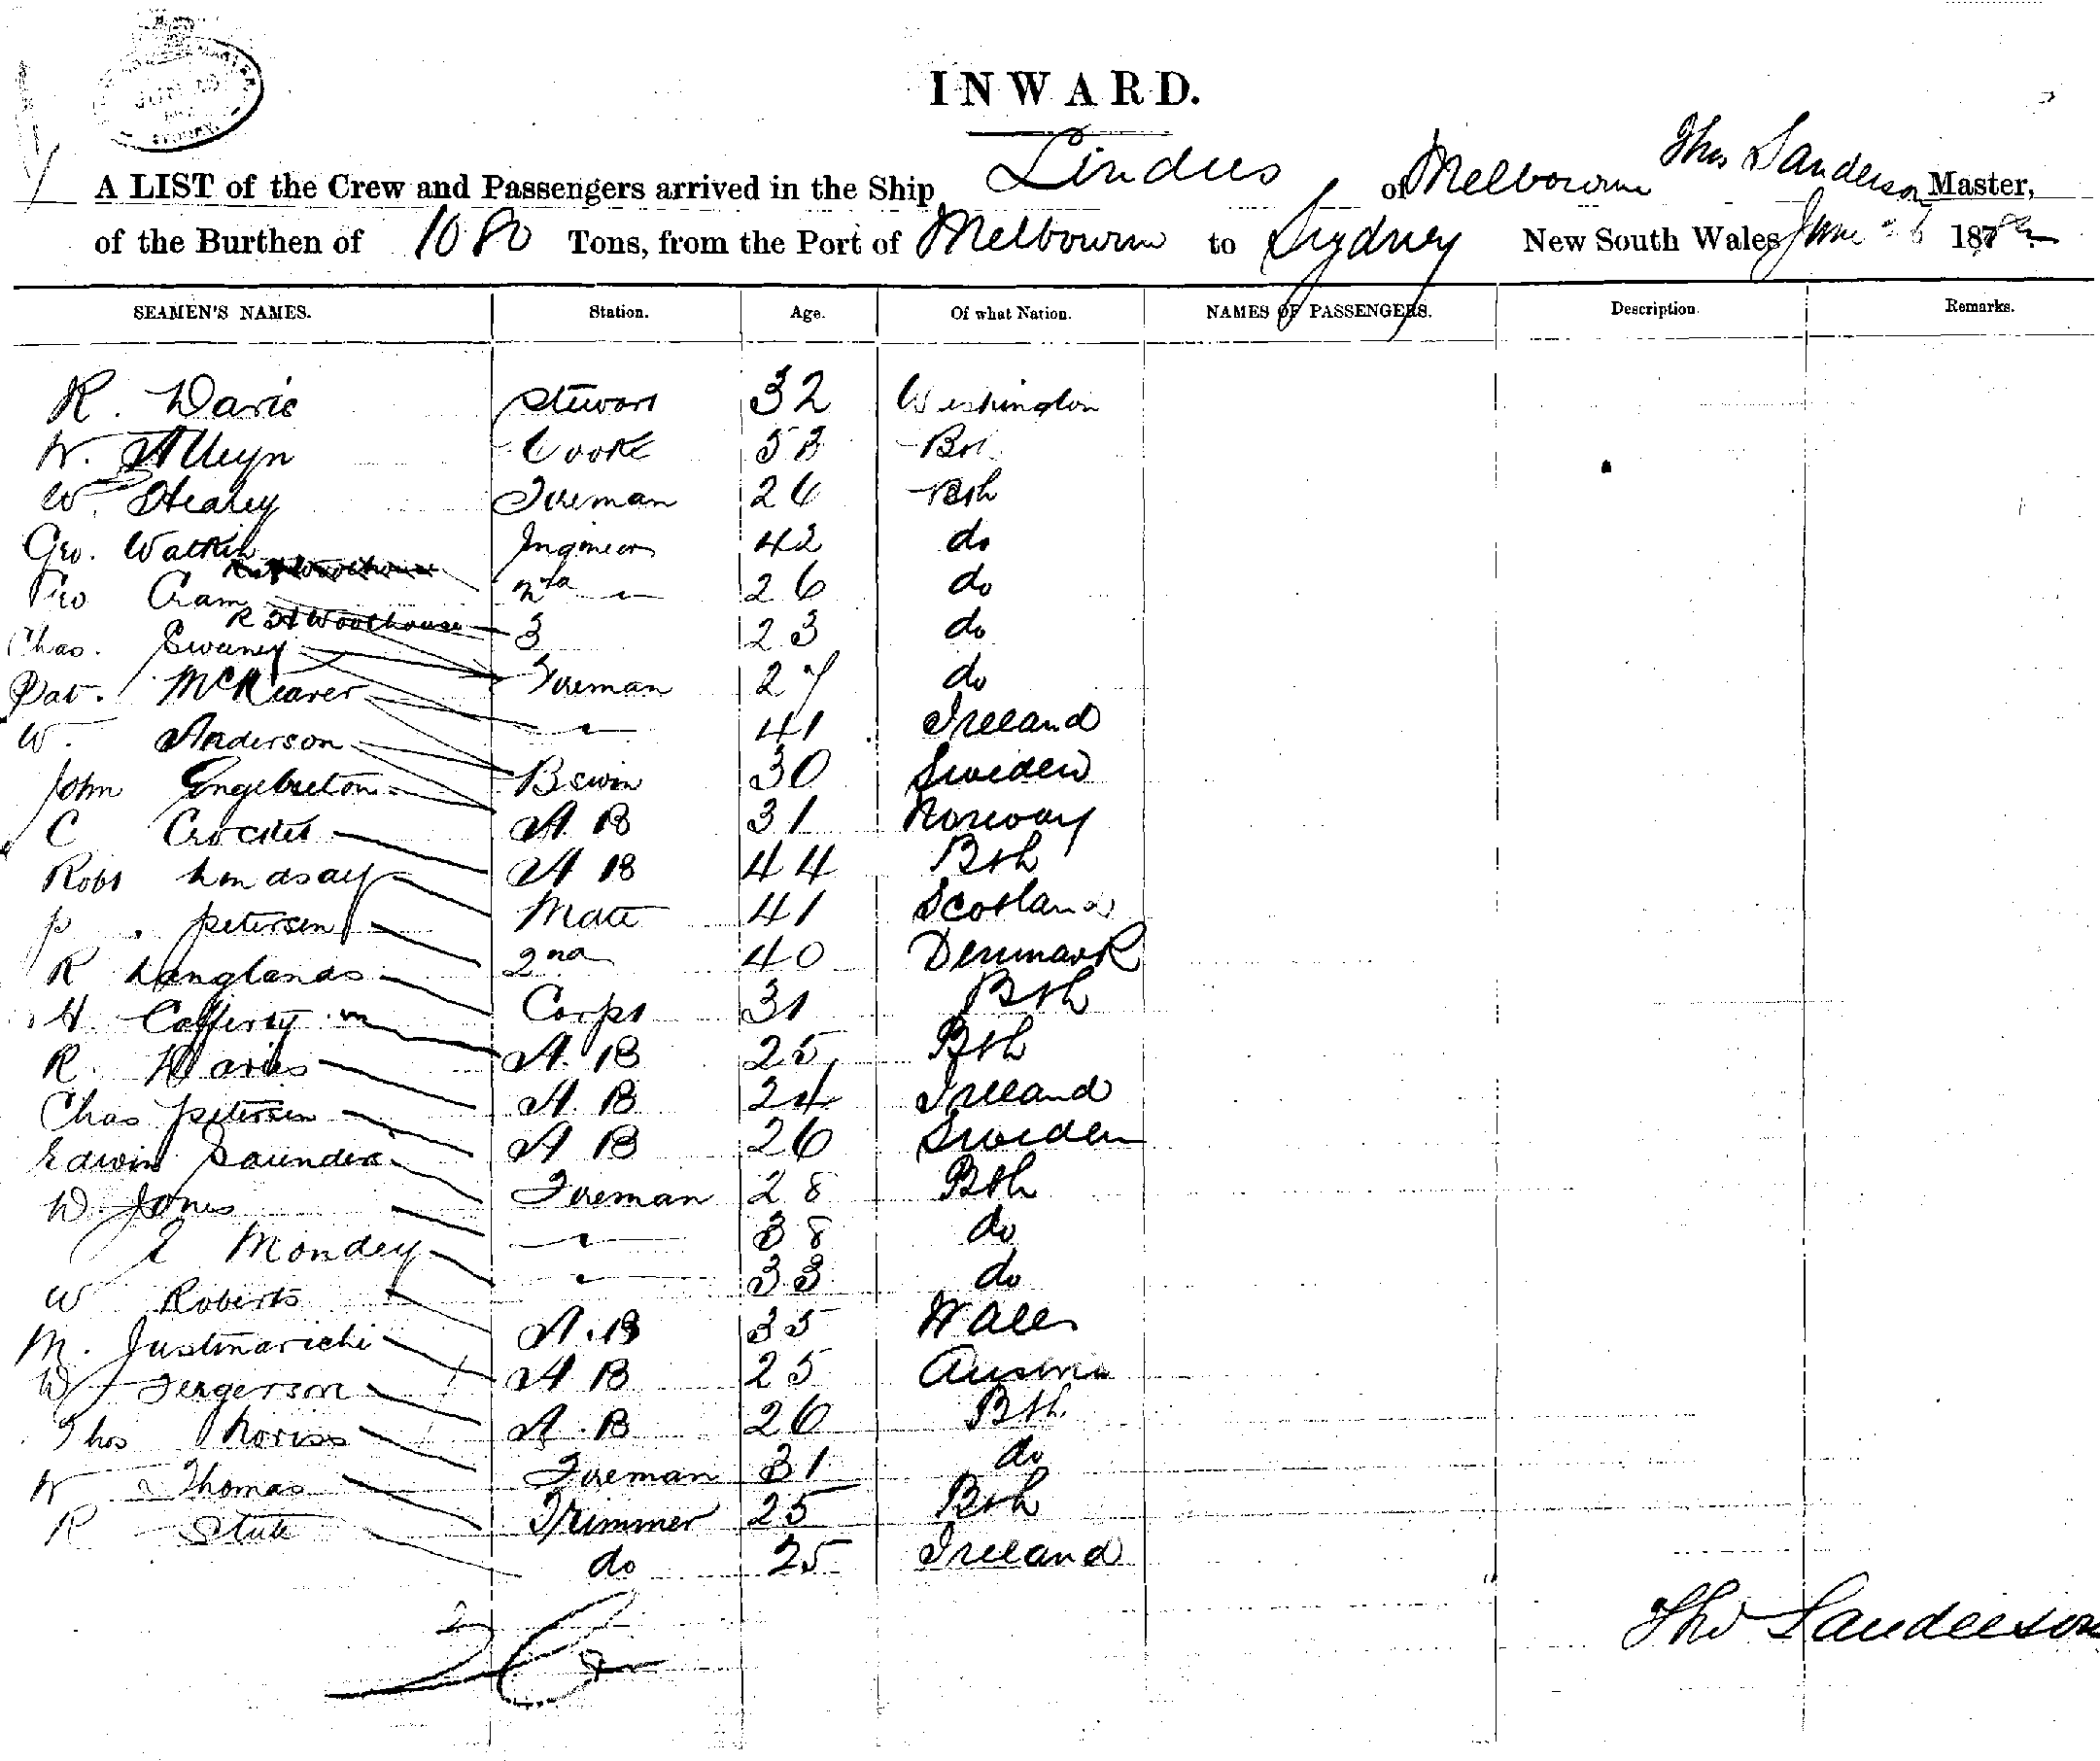 INWARD.
A LIST of the Crew and Passengers arrived in the Ship Lindus of Melbourne Thos Sanderson Master,
of the Burthen of 1080 Tons, from the Port of Melbourne to Sydney New South Wales June 26 1882
SEAMEN'S NAMES. Station. Age. Of what Nation. NAMES OF PASSENGERS. Description. Remarks.
R. Davis Steward 32 Washington
W. Alleyn Cooke 53 Bri
W. Healey Fireman 26 Bsh
Geo. Watkin Engineer 42 do
Geo Cram 2nd 26 do
R H Woolhouse 3 23 do
Chas. Sweeney Fireman 27 do
Pat. McKeaver 41 Ireland
W. Anderson Bswn 30 Sweden
John Engebreton A. B 31 Norway
C Crocket A B 44 Bsh
Robt Lindsay Mate 41 Scotland
P. Petersen 2nd 40 Denmark
R Langlands Carpt 31 Bsh
H. Cafferty A. B 25 Bsh
R. Davies A. B 24 Ireland
Chas Petersen A B 26 Sweden
Edwin Saunders Fireman 28 Bsh
W. Jones 38 do
Mondey 33 do
W Roberts A. B 35 Wales
M. Justinarichi A B 25 Austria
W Fergerson A. B 26 Bsh
Thos Noriss Fireman 31 do
W Thomas Trimmer 25 Bsh
R do 25 Ireland
Thos Sanderson